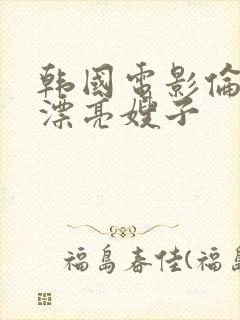 韩國電影倫
漂亮嫂子
福島春佳(福島